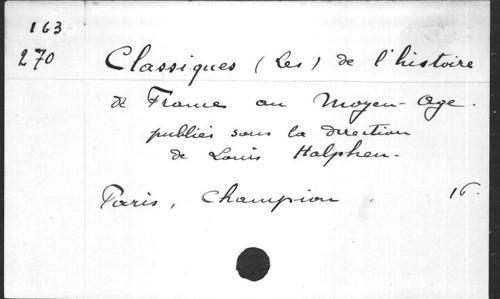 163
270
Classiques (Les) de l'histoire
de France au Moyen-Age.
publiés sous la direction
de Louis Halphen.
Paris, Champion. 16.